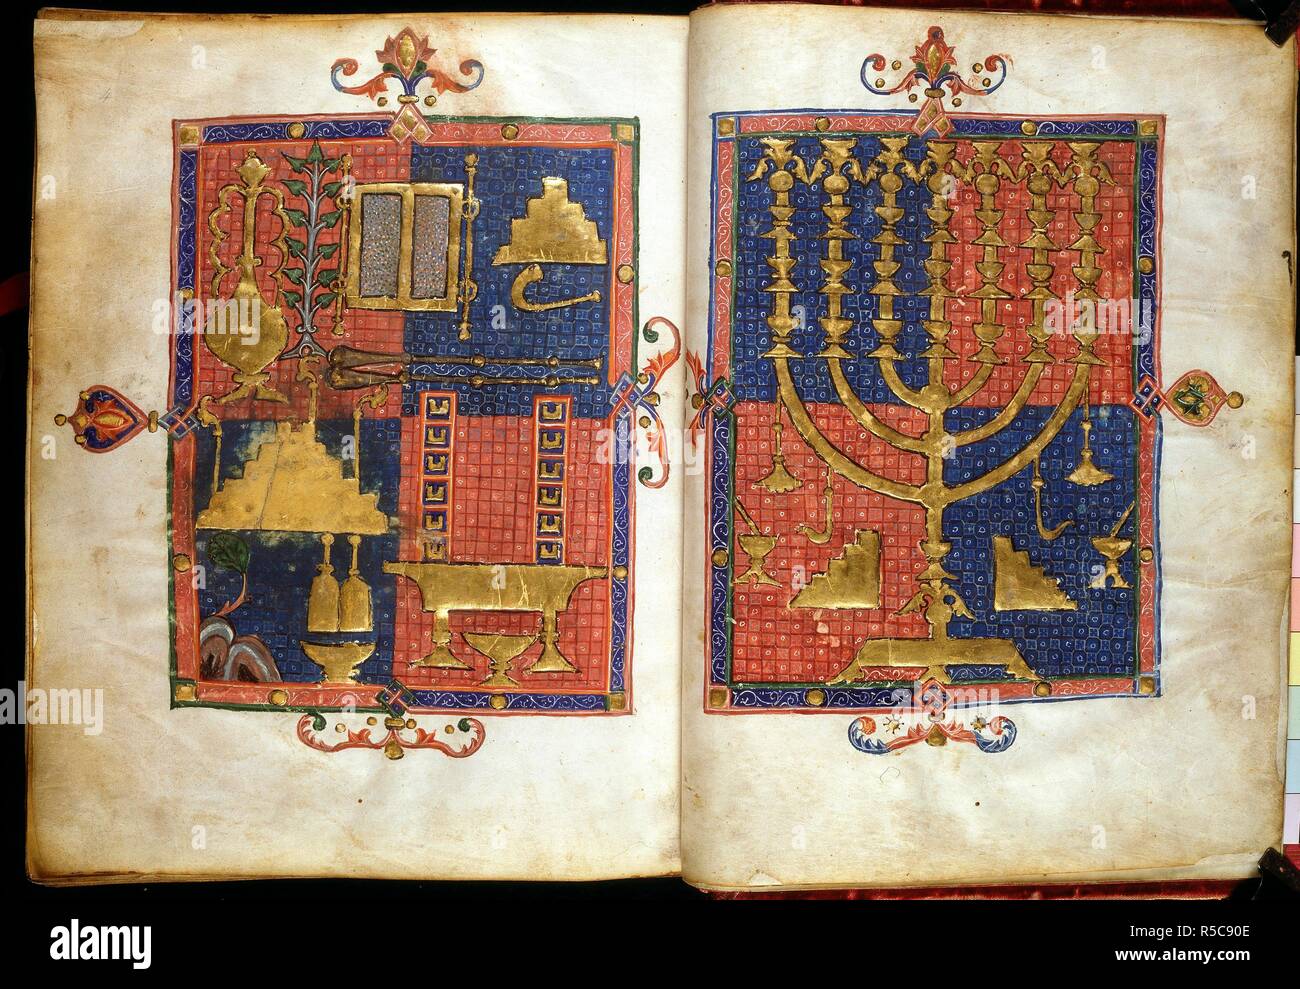 a
alamy
a
a
a
alamy
Image ID: R5C90E
www.alamy.com